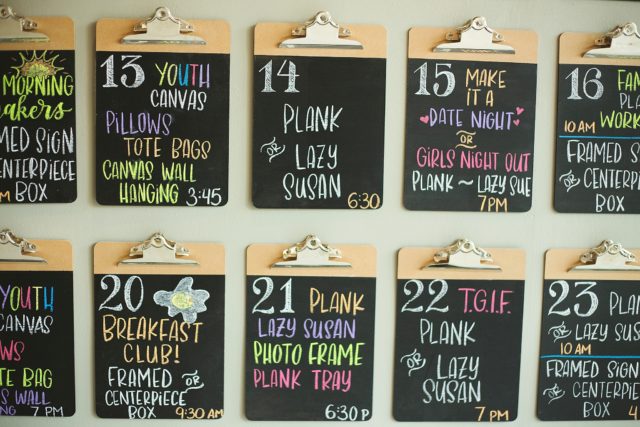 MORNING
Makers
FRAMED SIGN
CENTERPIECE
BOX
13 YOUTH
CANVAS
PILLOWS
TOTE BAGS
CANVAS WALL
HANGING 3:45
14
PLANK
OR LAZY
SUSAN
6:30
15 MAKE
IT A
DATE NIGHT
OR
GIRLS NIGHT OUT
PLANK ~ LAZY SUE
7PM
16
PLAN
WORK
10 AM
FRAMED SIGN
OR CENTERPIECE
BOX
YOUTH
CANVAS
TOTE BAG
7 PM
20
BREAKFAST
CLUB!
FRAMED OR
CENTERPIECE
BOX 9:30 AM
21 PLANK
LAZY SUSAN
PHOTO FRAME
PLANK TRAY
6:30 P
22 T.G.I.F.
PLANK
OR LAZY
SUSAN
7PM
23 PLANK
OR LAZY SUSAN
10 AM
FRAMED SIGN
OR CENTERPIECE
BOX